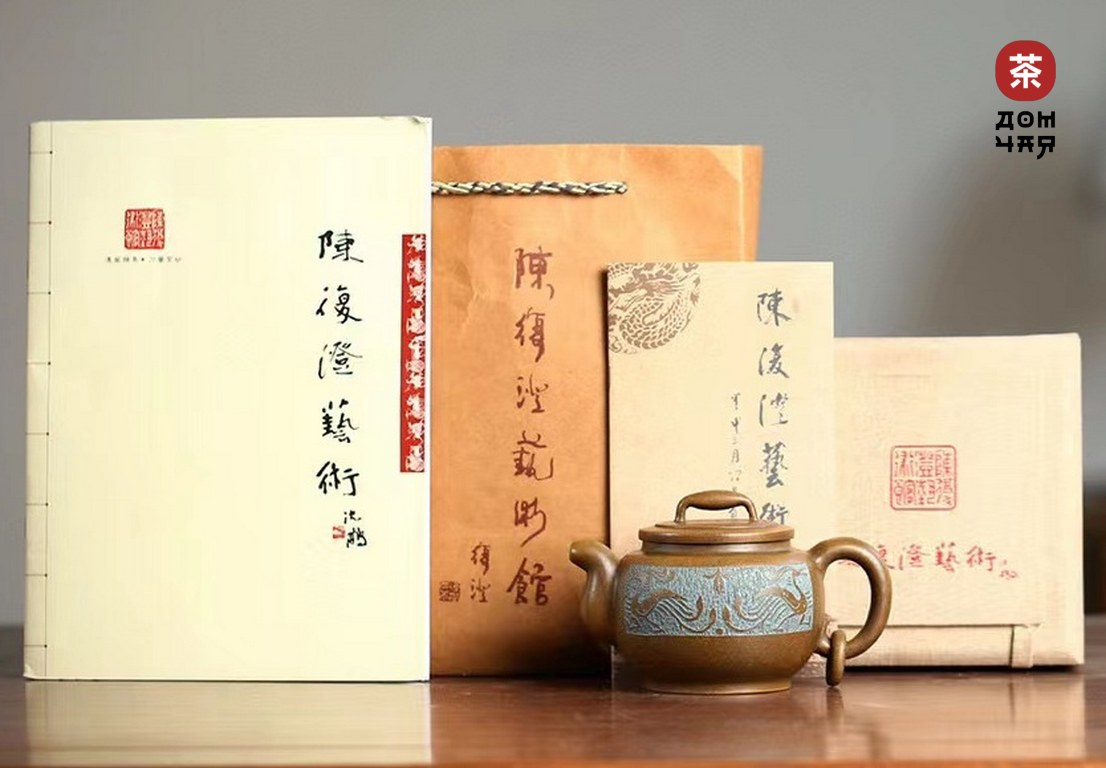 茶
ДОМ
ЧАЯ
陳復澄藝術
沈鵬
陳復澄藝術館
復澄
陳復澄藝術
復澄藝術